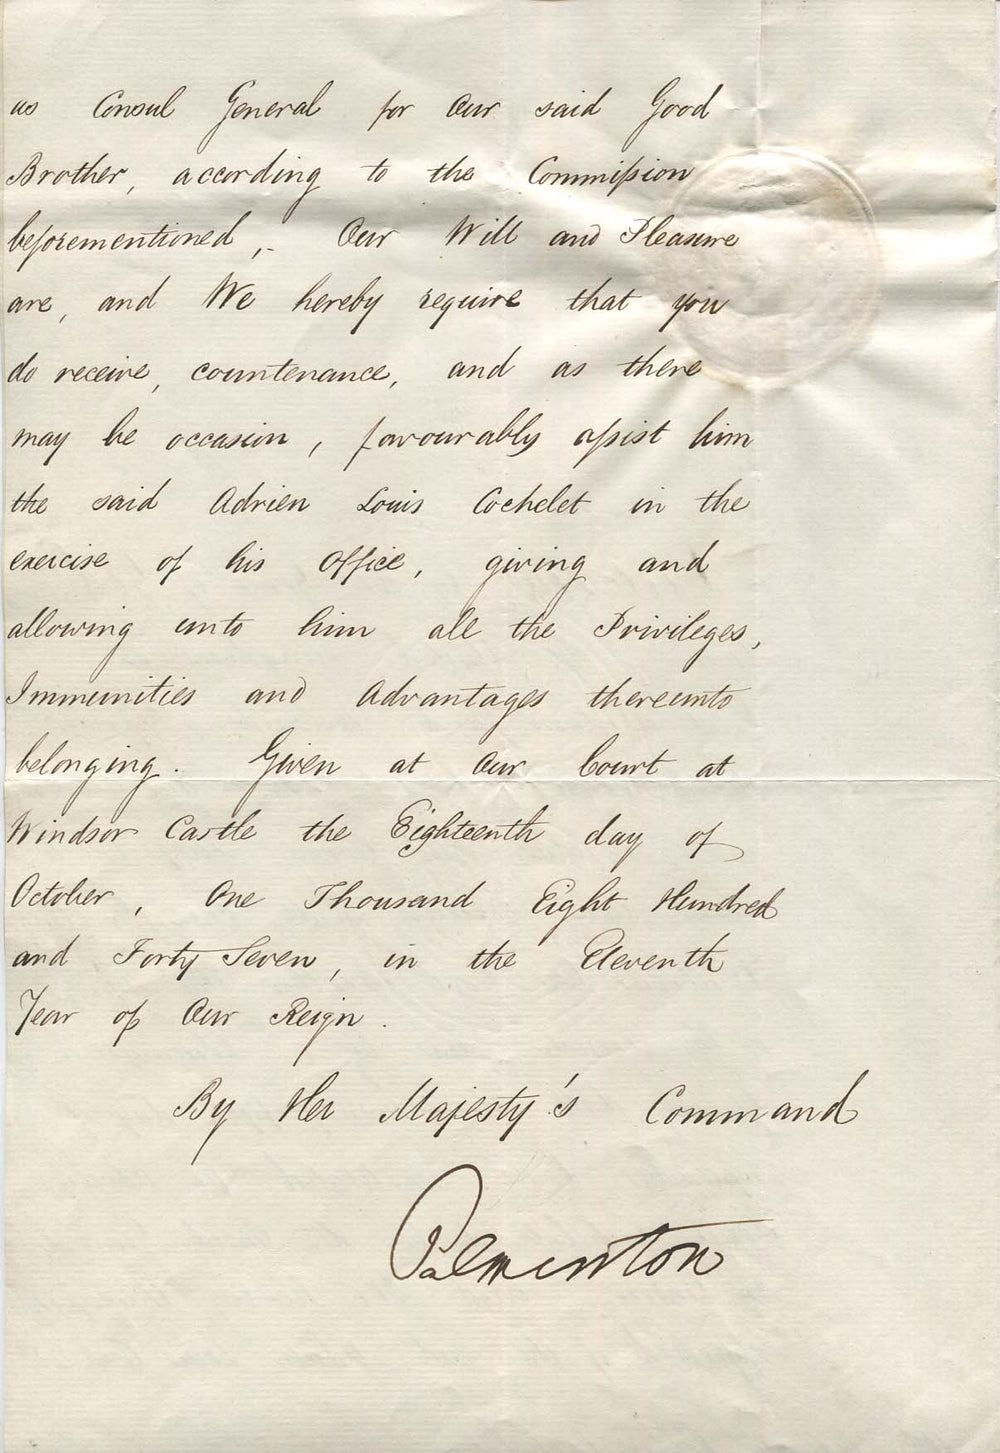 as Consul General for Our said Good
Brother, according to the Commission
beforementioned,- Our Will and Pleasure
are, and We hereby require that you
do receive, countenance, and as there
may be occasion, favourably assist him
the said Adrien Louis Cochelet in the
exercise of his Office, giving and
allowing unto him all the Privileges,
Immunities and Advantages thereunto
belonging. Given at Our Court at
Windsor Castle the Eighteenth day of
October, One Thousand Eight Hundred
and Forty Seven, in the Eleventh
Year of Our Reign.
By Her Majesty's Command
Palmerston